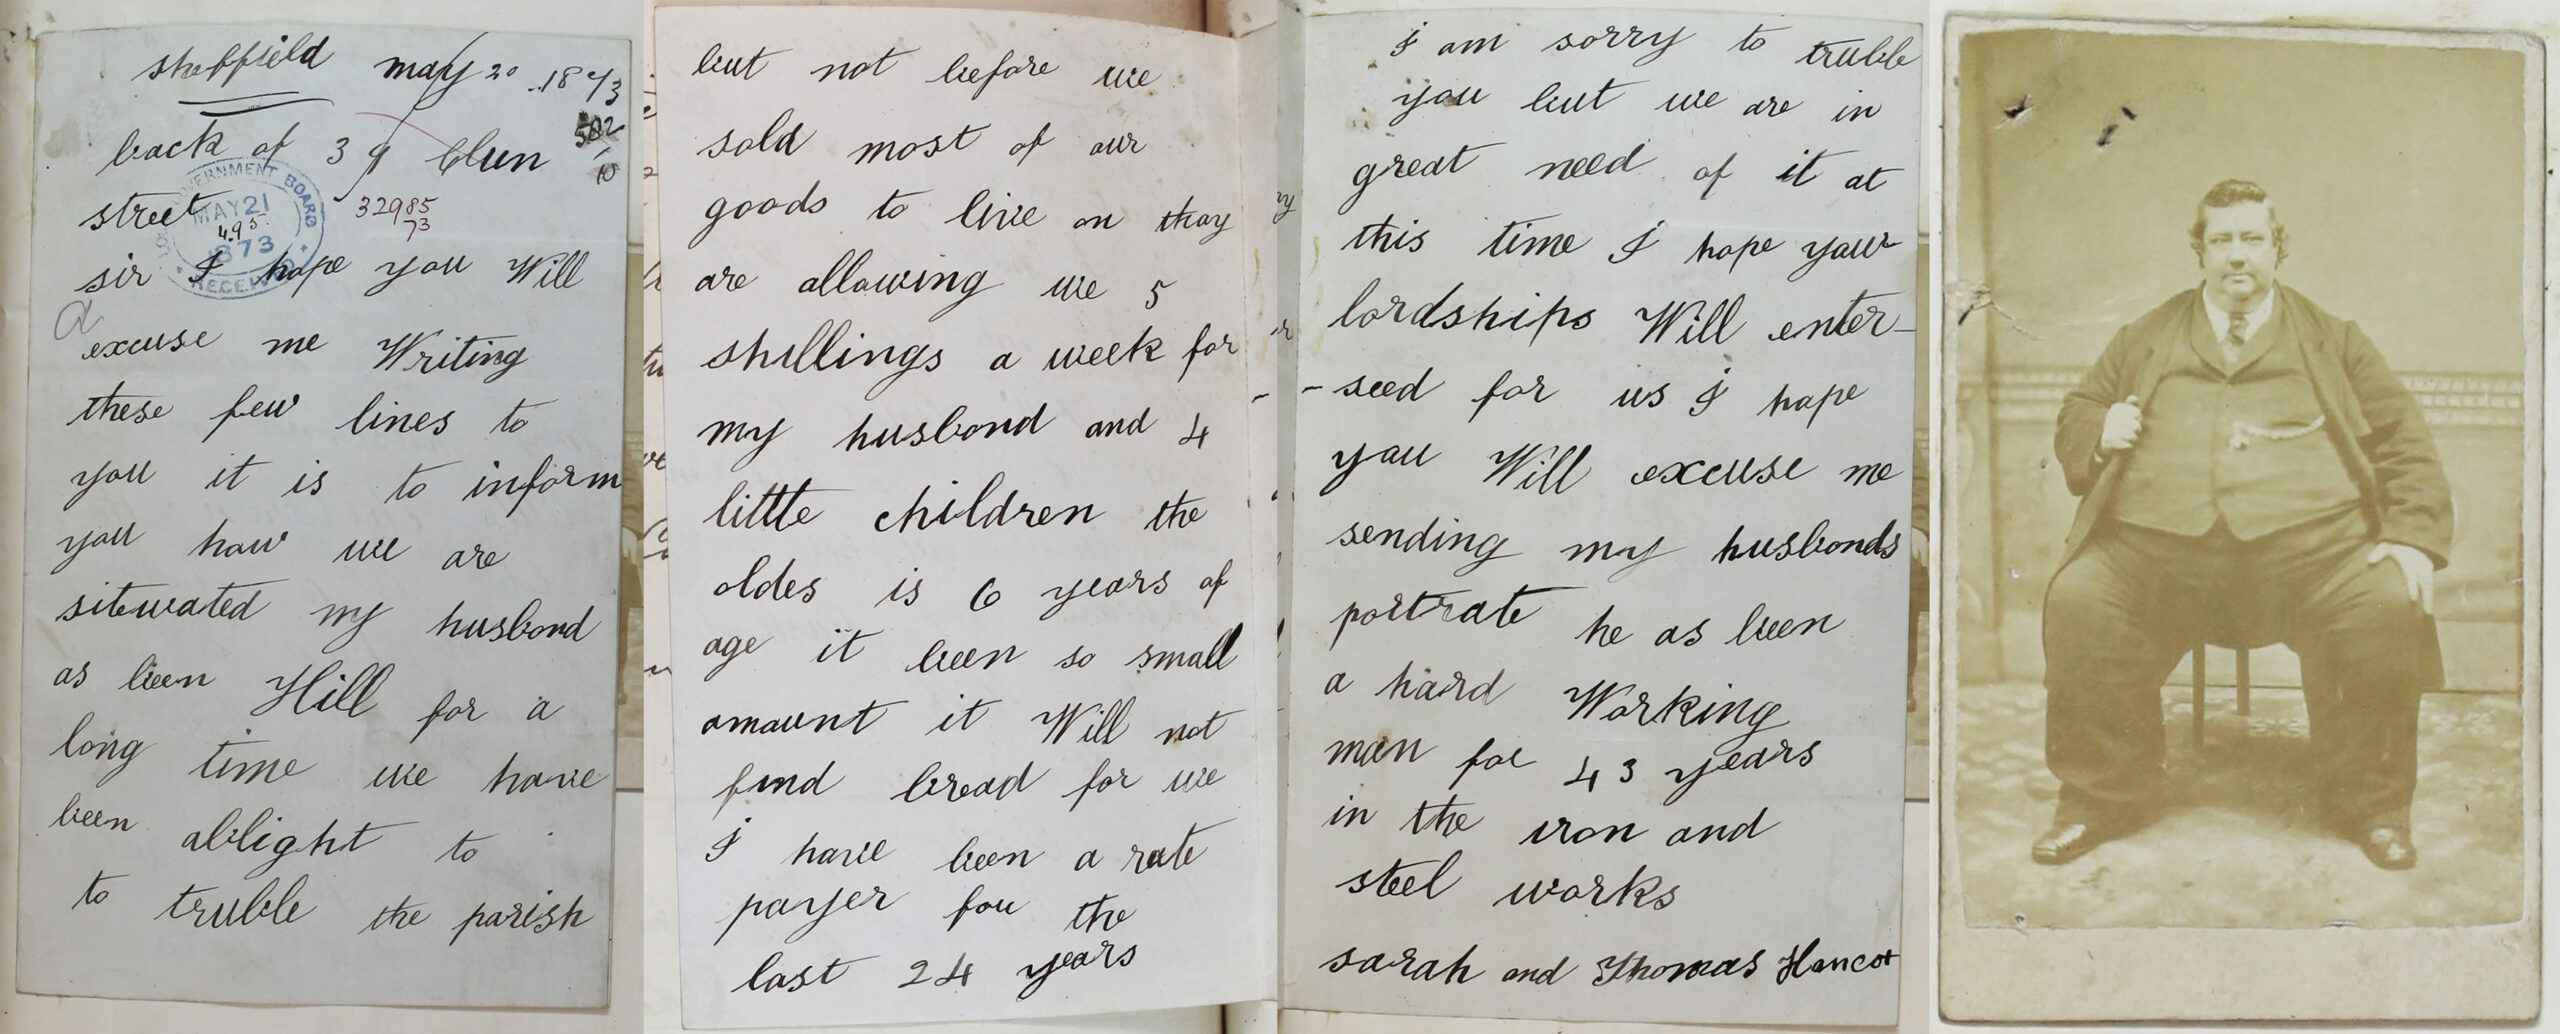 sheffield may 20 1873
502
10
back of 39 Clun
street 32985
73
GOVERNMENT BOARD
MAY 21
495
1873
RECEIVED
sir I hope you Will
excuse me Writing
these few lines to
you it is to inform
you how we are
sitewated my husband
as been Hill for a
long time we have
been ablight to
to truble the parish
but not before we
sold most of our
goods to live on thay
are allowing we 5
shillings a week for
my husband and 4
little children the
oldes is 6 years of
age it been so small
amount it Will not
find bread for we
I have been a rate
payer fou the
last 24 years
I am sorry to truble
you but we are in
great need of it at
this time I hope your
lordships Will enter-
-seed for us I hope
you Will excuse me
sending my husbands
portrate he as been
a hard Working
man for 43 years
in the iron and
steel works
sarah and Thomas Hancot